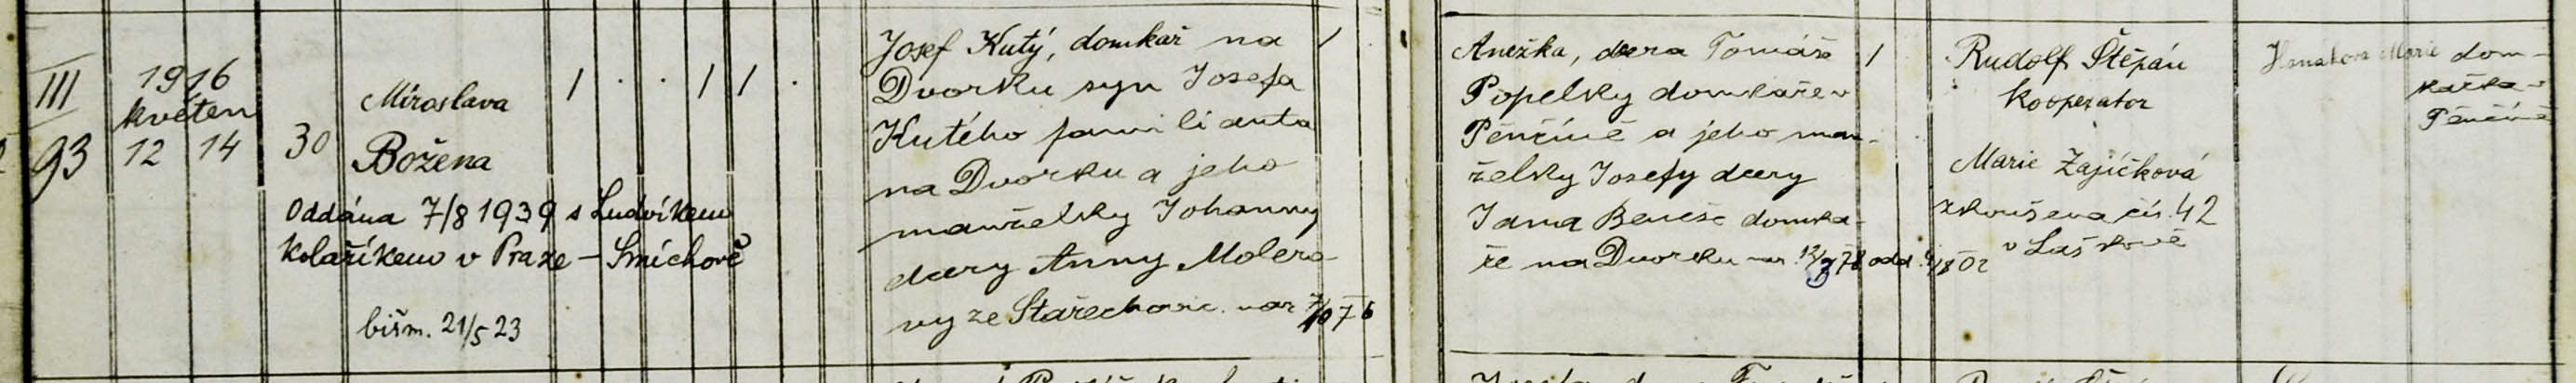 III
93
1916
květen
12 14
30
Miroslava
Božena
Oddána 7/8 1939 s Ludvíkem
Kolaříkem v Praze - Smíchově
biřm. 21/5 23
Josef Kutý, domkař na
Dvorku syn Josefa
Kutého familianta
na Dvorku a jeho
manželky Johanny
dcery Anny Molero-
vy ze Stařechovic. nar 7/10 76
Anežka, dcera Tomáše
Popelky domkaře v
Pěnčíně a jeho man-
želky Josefy dcery
Jana Beneše domka-
ře na Dvorku nar. 12/ 78 odd. /8 02
Rudolf Štěpán
kooperator
Marie Zajíčková
zkoušena čís. 42
v Laškově
Marie dom-
kařka v
Pěnčíně